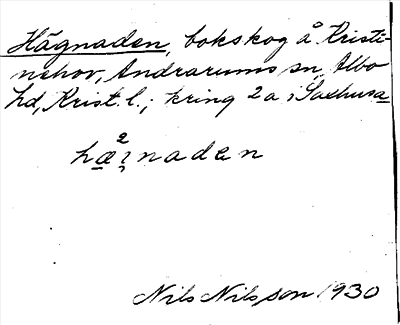 Hägnaden, bokskog å Kristi-
nehov, Andrarums sn, Albo
hd, Krist. l.; kring 2 a i Saxhusa
hæ²i̯naden
Nils Nilsson 1930